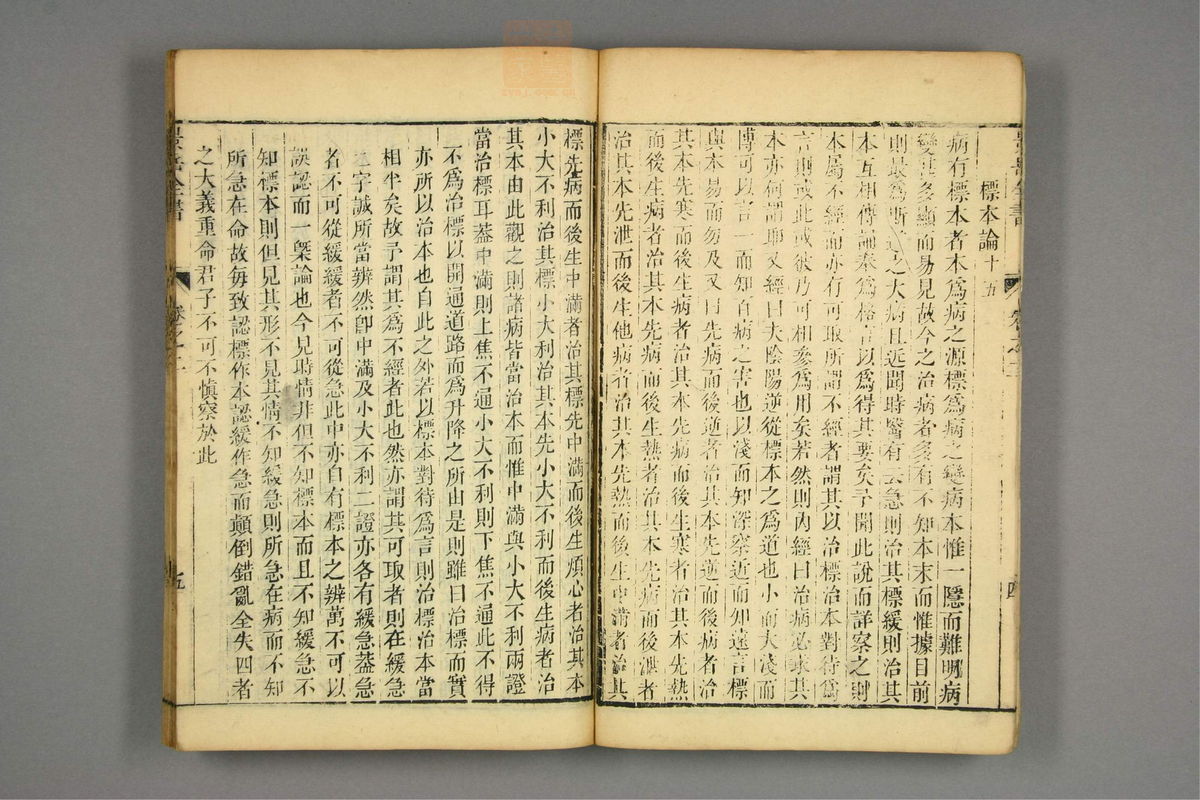 標本論十五
病有標本者本爲病之源標爲病之變病本惟一隱而難明病
變甚多顯而易見故今之治病者多有不知本末而惟據目前
則最爲斯道之大病且近聞時醫有云急則治其標緩則治其
本互相傳誦奉爲格言以爲得其要矣予聞此說而詳察之則
本屬不經而亦有可取所謂不經者謂其以治標治本對待爲
言則或此或彼乃可相參爲用矣若然則內經曰治病必求其
本亦何謂耶又經曰夫陰陽逆從標本之爲道也小而大淺而
博可以言一而知百病之害也以淺而知深察近而知遠言標
與本易而勿及又曰先病而後逆者治其本先逆而後病者治
其本先寒而後生病者治其本先病而後生寒者治其本先熱
而後生病者治其本先病而後生熱者治其本先病而後泄者
治其本先泄而後生他病者治其本先熱而後生中滿者治其
四
標先病而後生中滿者治其標先中滿而後生煩心者治其本
小大不利治其標小大利治其本先小大不利而後生病者治
其本由此觀之則諸病皆當治本而惟中滿與小大不利兩證
當治標耳葢中滿則上焦不通小大不利則下焦不通此不得
不爲治標以開通道路而爲升降之所由是則雖曰治標而實
亦所以治本也自此之外若以標本對待爲言則治標治本當
相半矣故予謂其爲不經者此也然亦謂其可取者則在緩急
二字誠所當辨然卽中滿及小大不利二證亦各有緩急葢急
者不可從緩緩者不可從急此中亦自有標本之辨萬不可以
誤認而一槩論也今見時情非但不知標本而且不知緩急不
知標本則但見其形不見其情不知緩急則所急在病而不知
所急在命故每致認標作本認緩作急而顛倒錯亂全失四者
之大義重命君子不可不慎察於此
景岳全書
卷之二
五